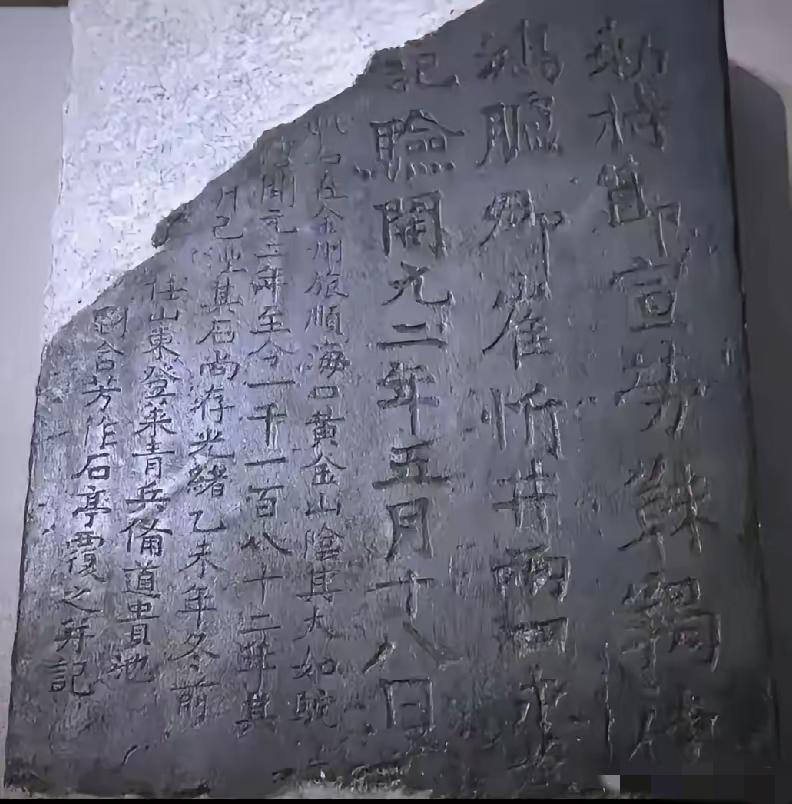 勅持節宣勞靺羯使
鴻臚卿崔忻井兩口永為
記驗開元二年五月十八日
此石在金州旅順海口黃金山陰其大如駝
開元二年至今一千一百八十二年其
井已湮其石尚存光緒乙未年冬前
任山東登萊青兵備道貴池
劉含芳作石亭覆之并記